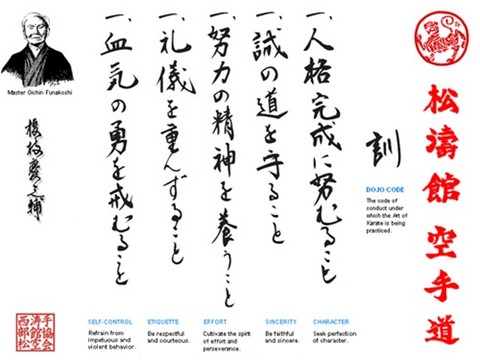 松濤館 空手道
訓
DOJO CODE
The code of
conduct under
which the Art of
Karate is being
practiced.
一、人格完成に努むること
一、誠の道を守ること
一、努力の精神を養うこと
一、礼儀を重んずること
一、血気の勇を戒むること
Master Gichin Funakoshi
SELF-CONTROL
Refrain from
impetuous and
violent behavior.
ETIQUETTE
Be respectful
and courteous.
EFFORT
Cultivate the spirit
of effort and
perseverance.
SINCERITY
Be faithful
and sincere.
CHARACTER
Seek perfection
of character.